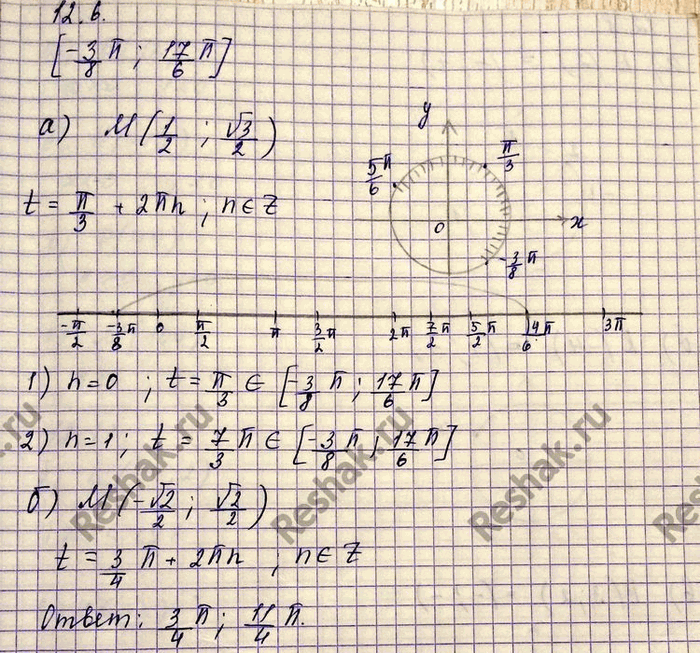 12.6.
[-3/8 π ; 17/6 π]
а) M(1/2 ; √3/2)
t = π/3 + 2πn ; n ∈ Z
y
π/3
5/6 π
0
x
-3/8 π
-π/2 -3/8 π 0 π/2 π 3/2 π 2π 7/2 π 5/2 π 4/6 π 3π
1) n=0 ; t = π/3 ∈ [-3/8 π ; 17/6 π]
2) n=1 ; t = 7/3 π ∈ [-3/8 π ; 17/6 π]
б) M(-√2/2 ; √2/2)
t = 3/4 π + 2πn ; n ∈ Z
Ответ: 3/4 π ; 11/4 π.
Reshak.ru
Reshak.ru
Reshak.ru